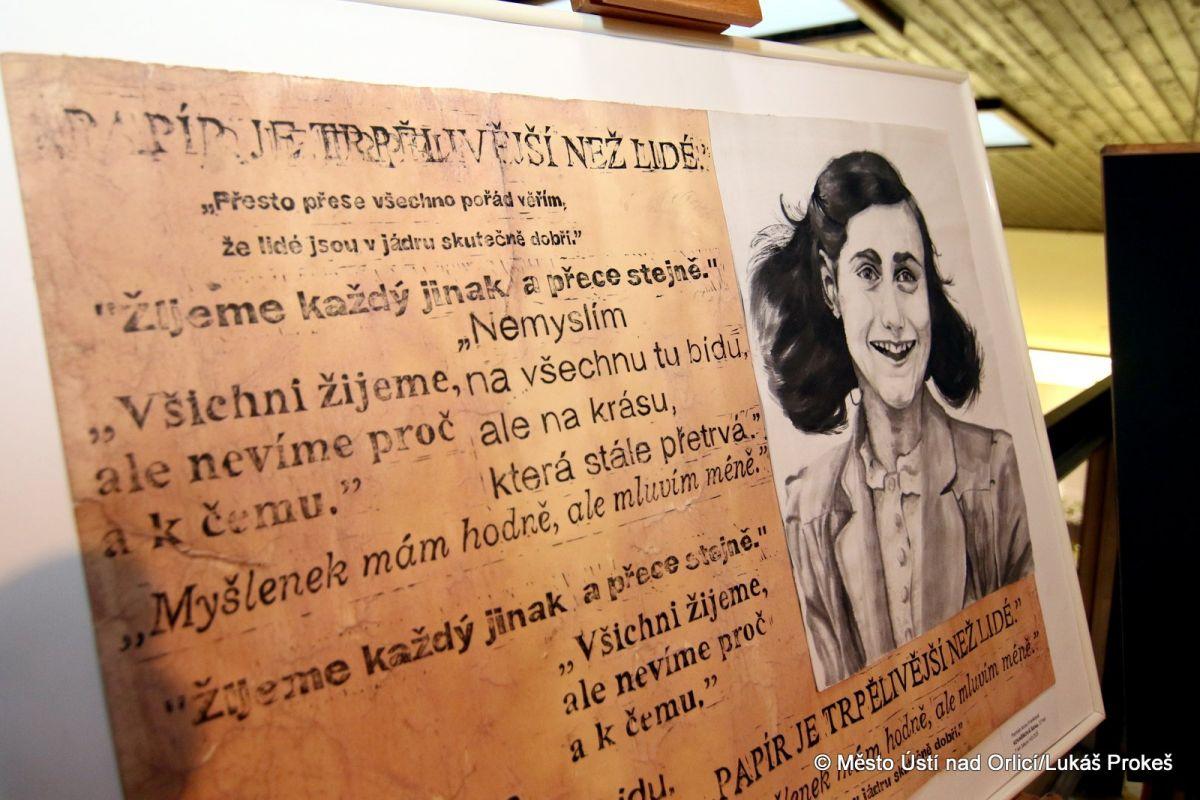 PAPÍR JE TRPĚLIVĚJŠÍ NEŽ LIDÉ."
„Přesto přese všechno pořád věřím,
že lidé jsou v jádru skutečně dobří."
"Žijeme každý jinak a přece stejně."
„Nemyslím
na všechnu tu bídu,
ale na krásu,
která stále přetrvá."
„Všichni žijeme,
ale nevíme proč
a k čemu."
„Myšlenek mám hodně, ale mluvím méně."
"Žijeme každý jinak a přece stejně."
„Všichni žijeme,
ale nevíme proč
a k čemu."
PAPÍR JE TRPĚLIVĚJŠÍ NEŽ LIDÉ."
šlenek mám hodně, ale mluvím méně."
jádru skutečně dobří."
bídu,
© Město Ústí nad Orlicí/Lukáš Prokeš